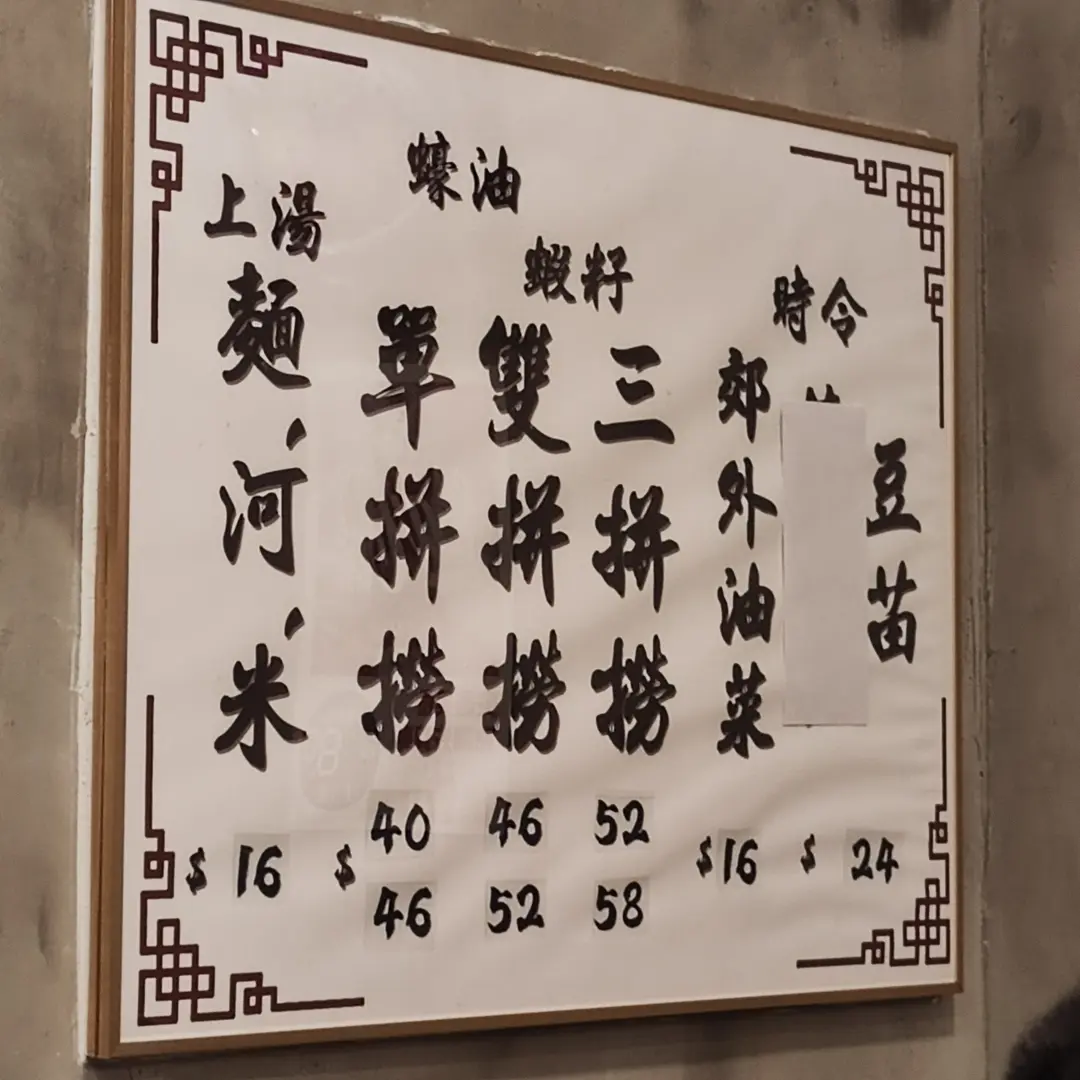 上湯
麵、河、米
$ 16
蠔油
蝦籽
單拼撈
雙拼撈
三拼撈
$ 40 46 52
46 52 58
時令
郊外油菜
$16
豆苗
$ 24